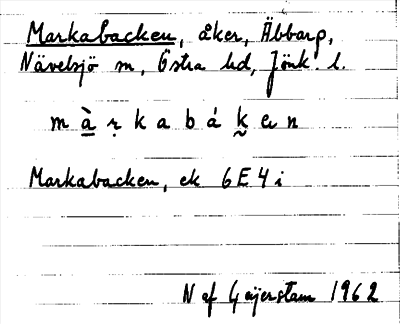 Markabacken, åker, Äbbarp,
Nävelsjö sn, Östra hd, Jönk. l.
m à ṛ k a b á k e n
Markabacken, ek 6E4i
N af Geijerstam 1962